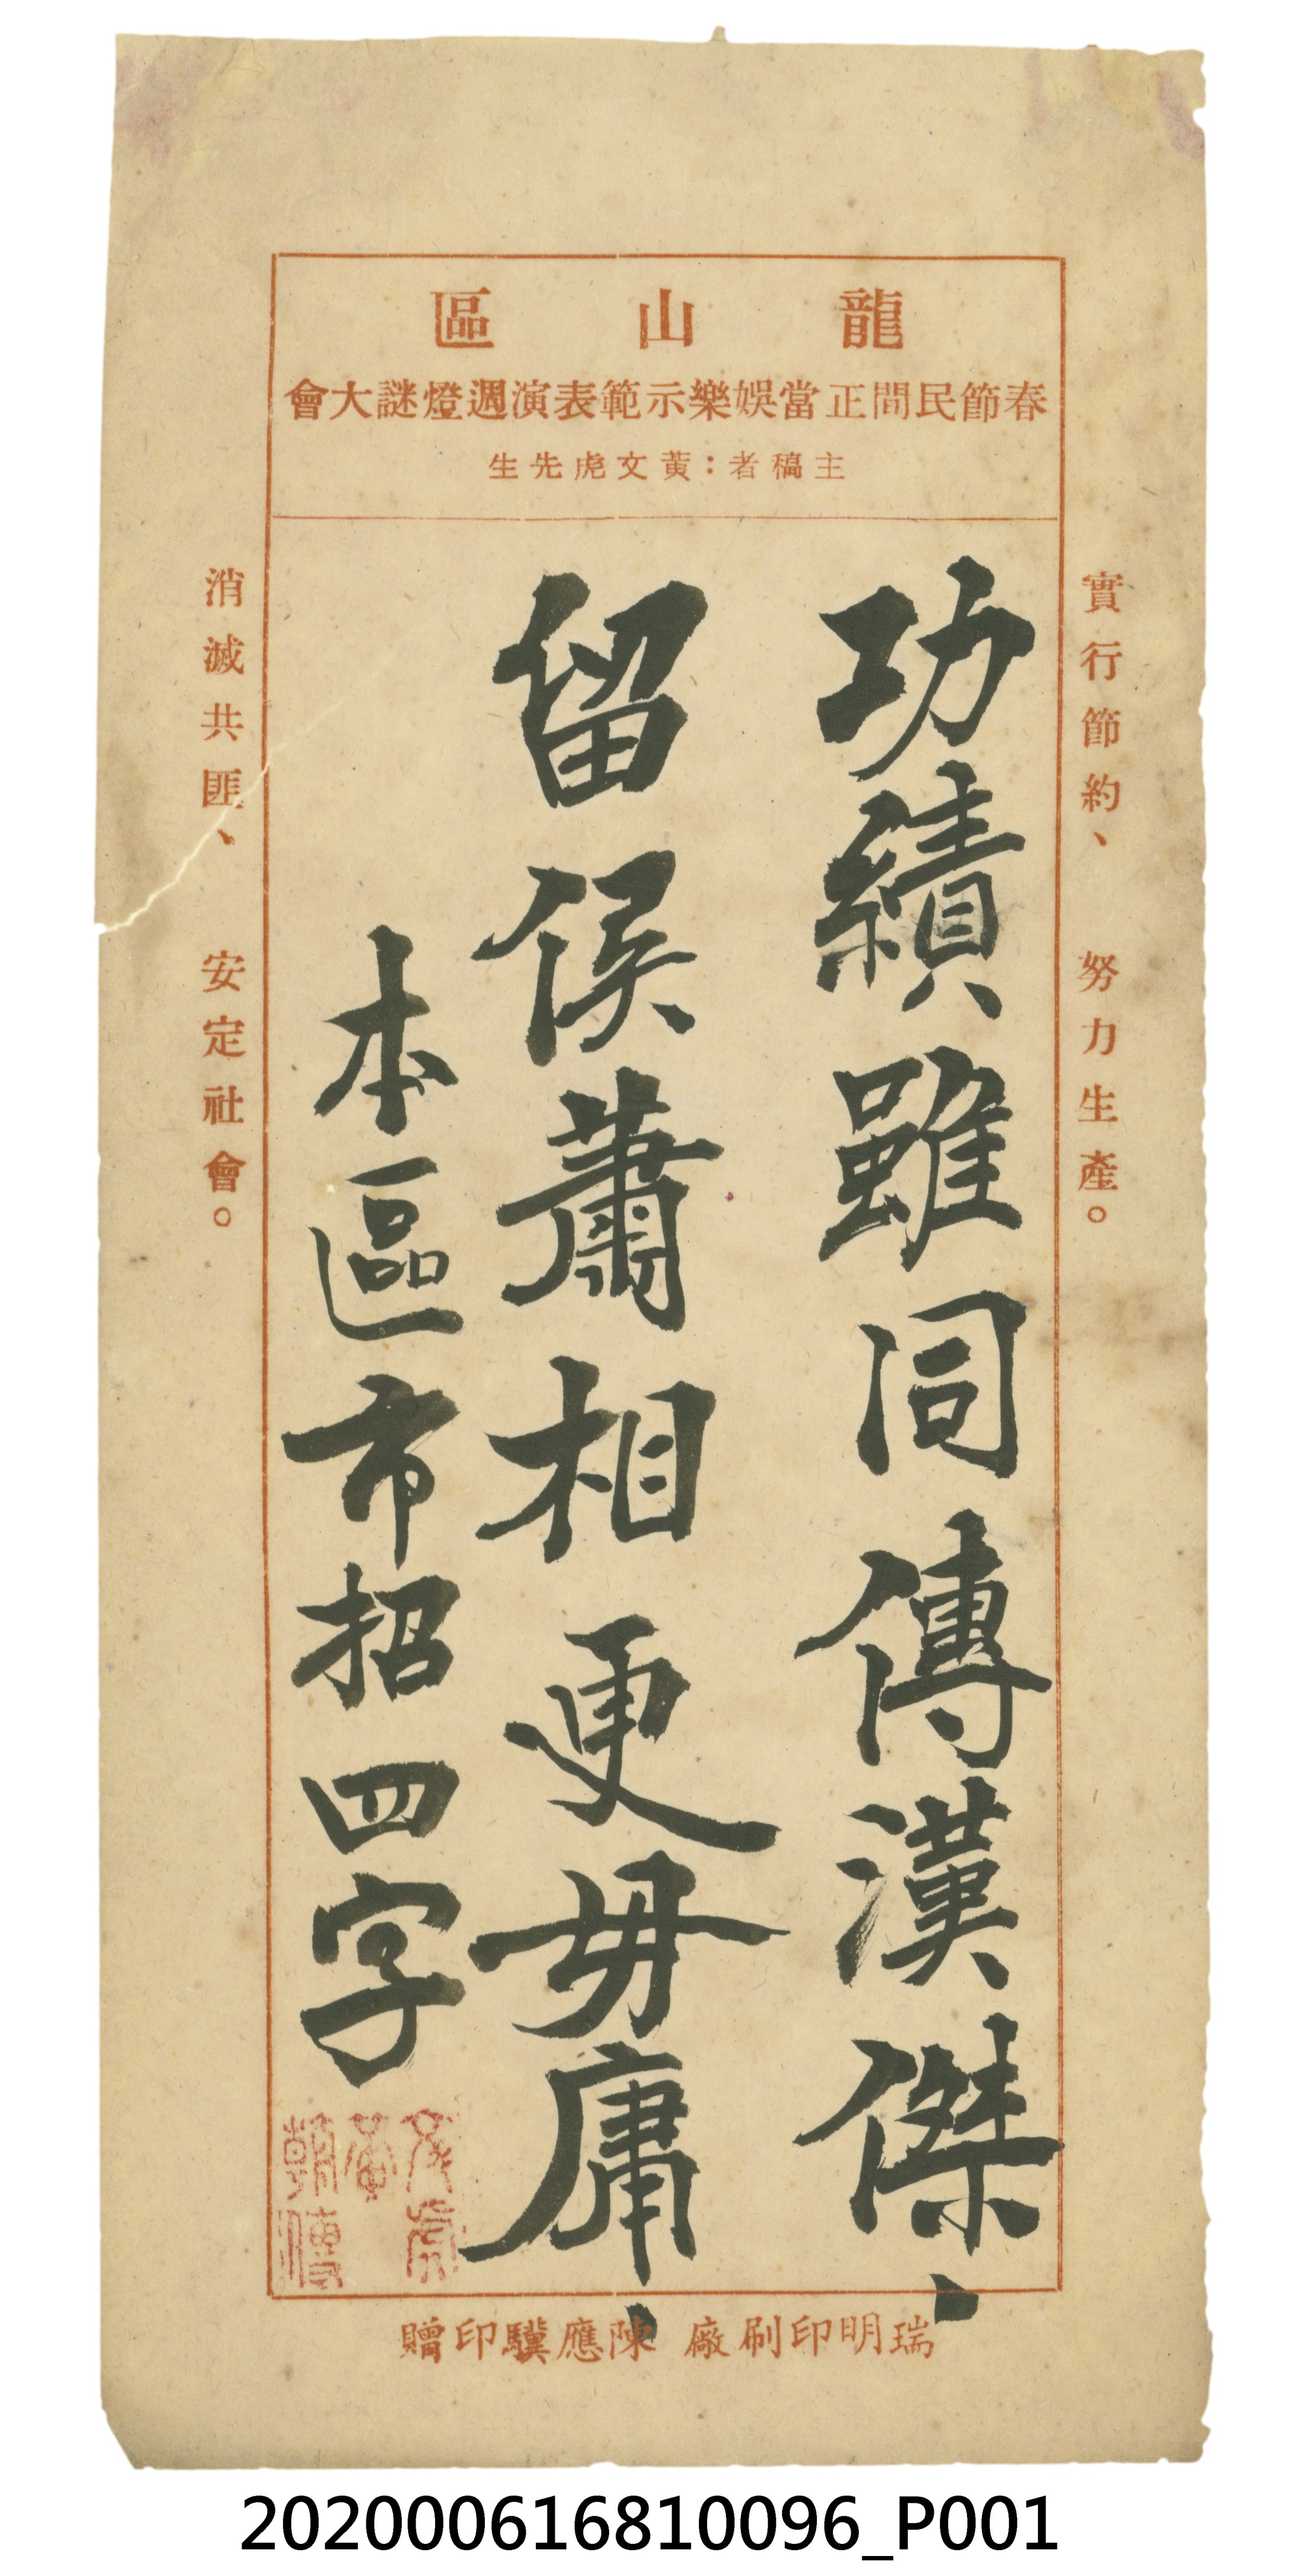 龍山區
春節民間正當娛樂示範表演週燈謎大會
主稿者：黃文虎先生
實行節約、努力生產。
功績雖同傳漢傑、
留侯蕭相更毋庸、
本區市招四字
文虎
黃
朝傳
消滅共匪、安定社會。
瑞明印刷廠 陳應驥印贈
202000616810096_P001